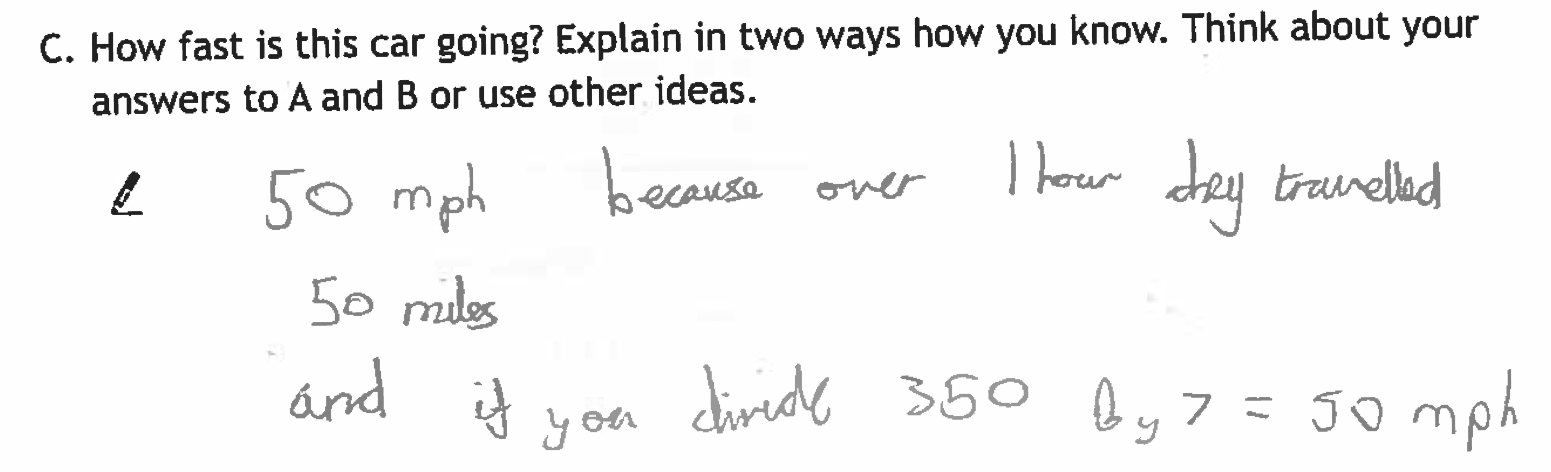 C. How fast is this car going? Explain in two ways how you know. Think about your
answers to A and B or use other ideas.
50 mph because over 1 hour they travelled
50 miles
and if you divide 350 by 7 = 50 mph